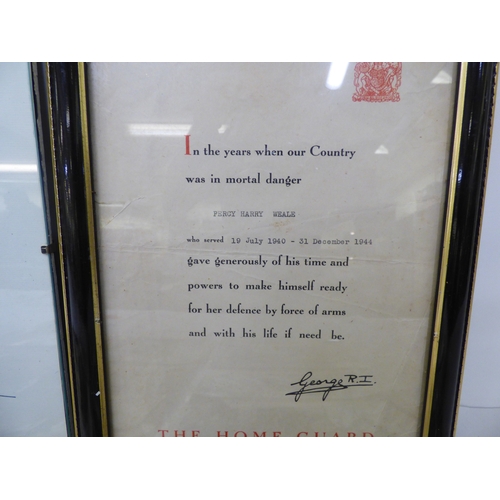 In the years when our Country
was in mortal danger
PERCY HARRY WHALE
who served 19 July 1940 - 31 December 1944
gave generously of his time and
powers to make himself ready
for her defence by force of arms
and with his life if need be.
George R.I.
THE HOME GUARD